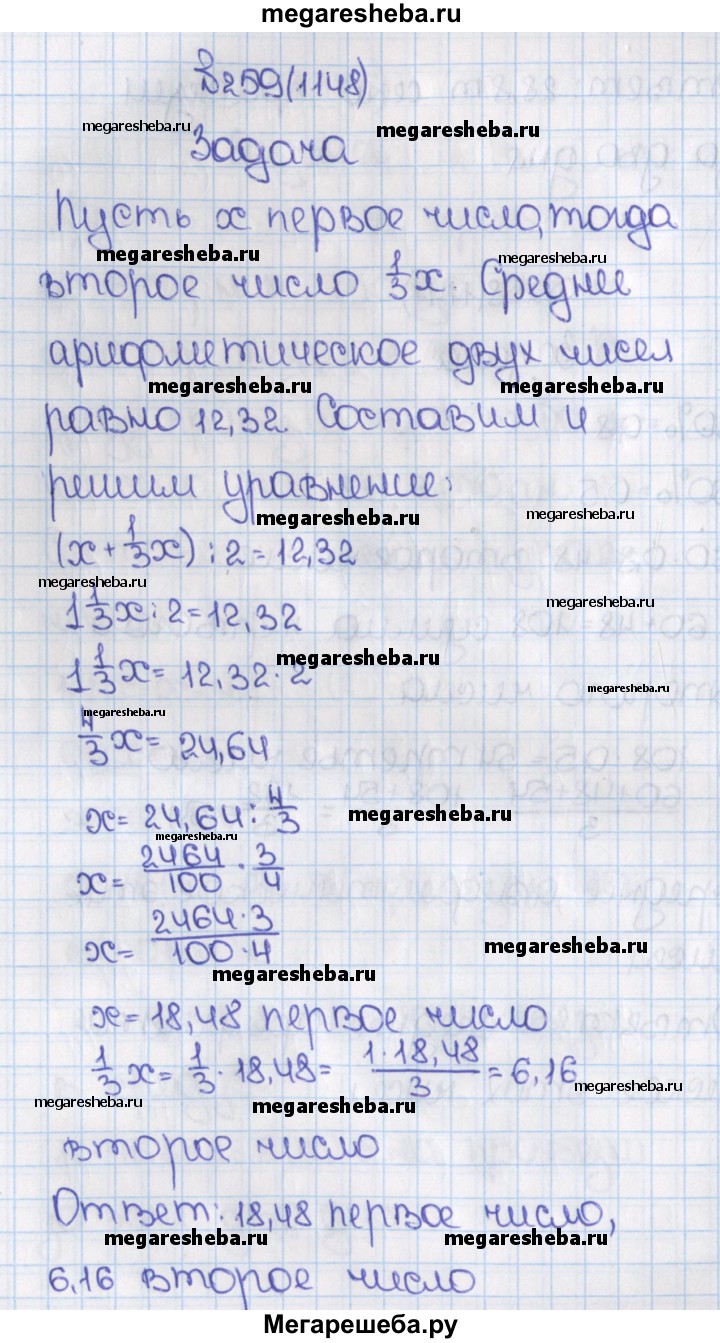 megaresheba.ru
В259(1148)
megaresheba.ru megaresheba.ru
Задача
Пусть x первое число, тогда
megaresheba.ru megaresheba.ru
второе число 1/3 x. Среднее
арифметическое двух чисел
megaresheba.ru megaresheba.ru
равно 12,32. Составим и
решим уравнение:
megaresheba.ru megaresheba.ru
(x + 1/3 x) : 2 = 12,32
megaresheba.ru megaresheba.ru
1 1/3 x : 2 = 12,32
megaresheba.ru
1 1/3 x = 12,32 · 2
megaresheba.ru megaresheba.ru
4/3 x = 24,64
x = 24,64 : 4/3
megaresheba.ru megaresheba.ru
x = 2464/100 · 3/4
x = 2464·3/100·4
megaresheba.ru
megaresheba.ru
x = 18,48 первое число
1/3 x = 1/3 · 18,48 = 1·18,48/3 = 6,16
megaresheba.ru megaresheba.ru megaresheba.ru
второе число
Ответ: 18,48 первое число,
megaresheba.ru megaresheba.ru
6,16 второе число
Мегарешеба.ру